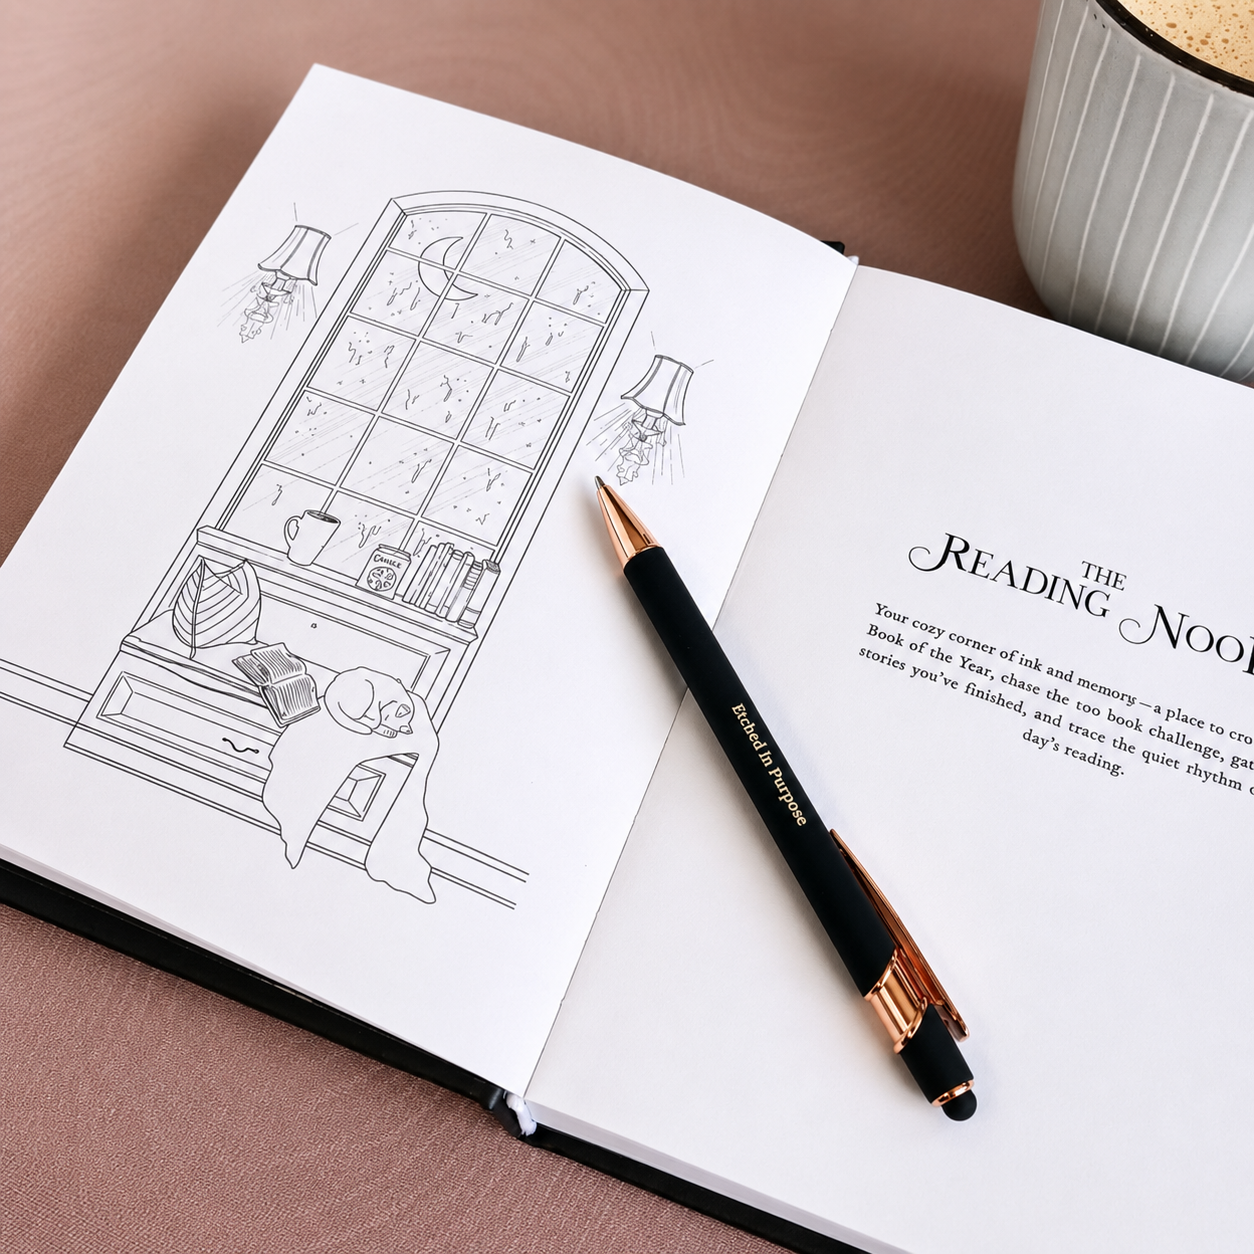 THE
READING
Your cozy corner of ink and memory—a place to
Book of the Year, chase the 100 book challenge,
stories you've finished, and trace the quiet rhythm
day's reading.
Etched In Purpose